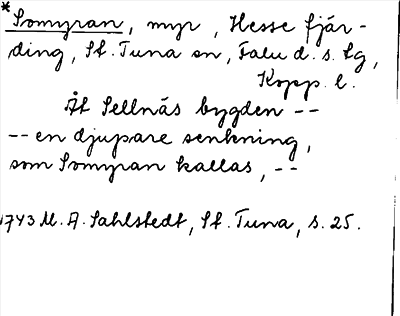 *Somyran, myr, Hesse fjär-
ding, St. Tuna sn, Falu d. s. lg,
Kopp. l.
Åt Sellnäs bygden --
-- en djupare senkning,
som Somyran kallas, --
1743 M. A. Sahlstedt, St. Tuna, s. 25.